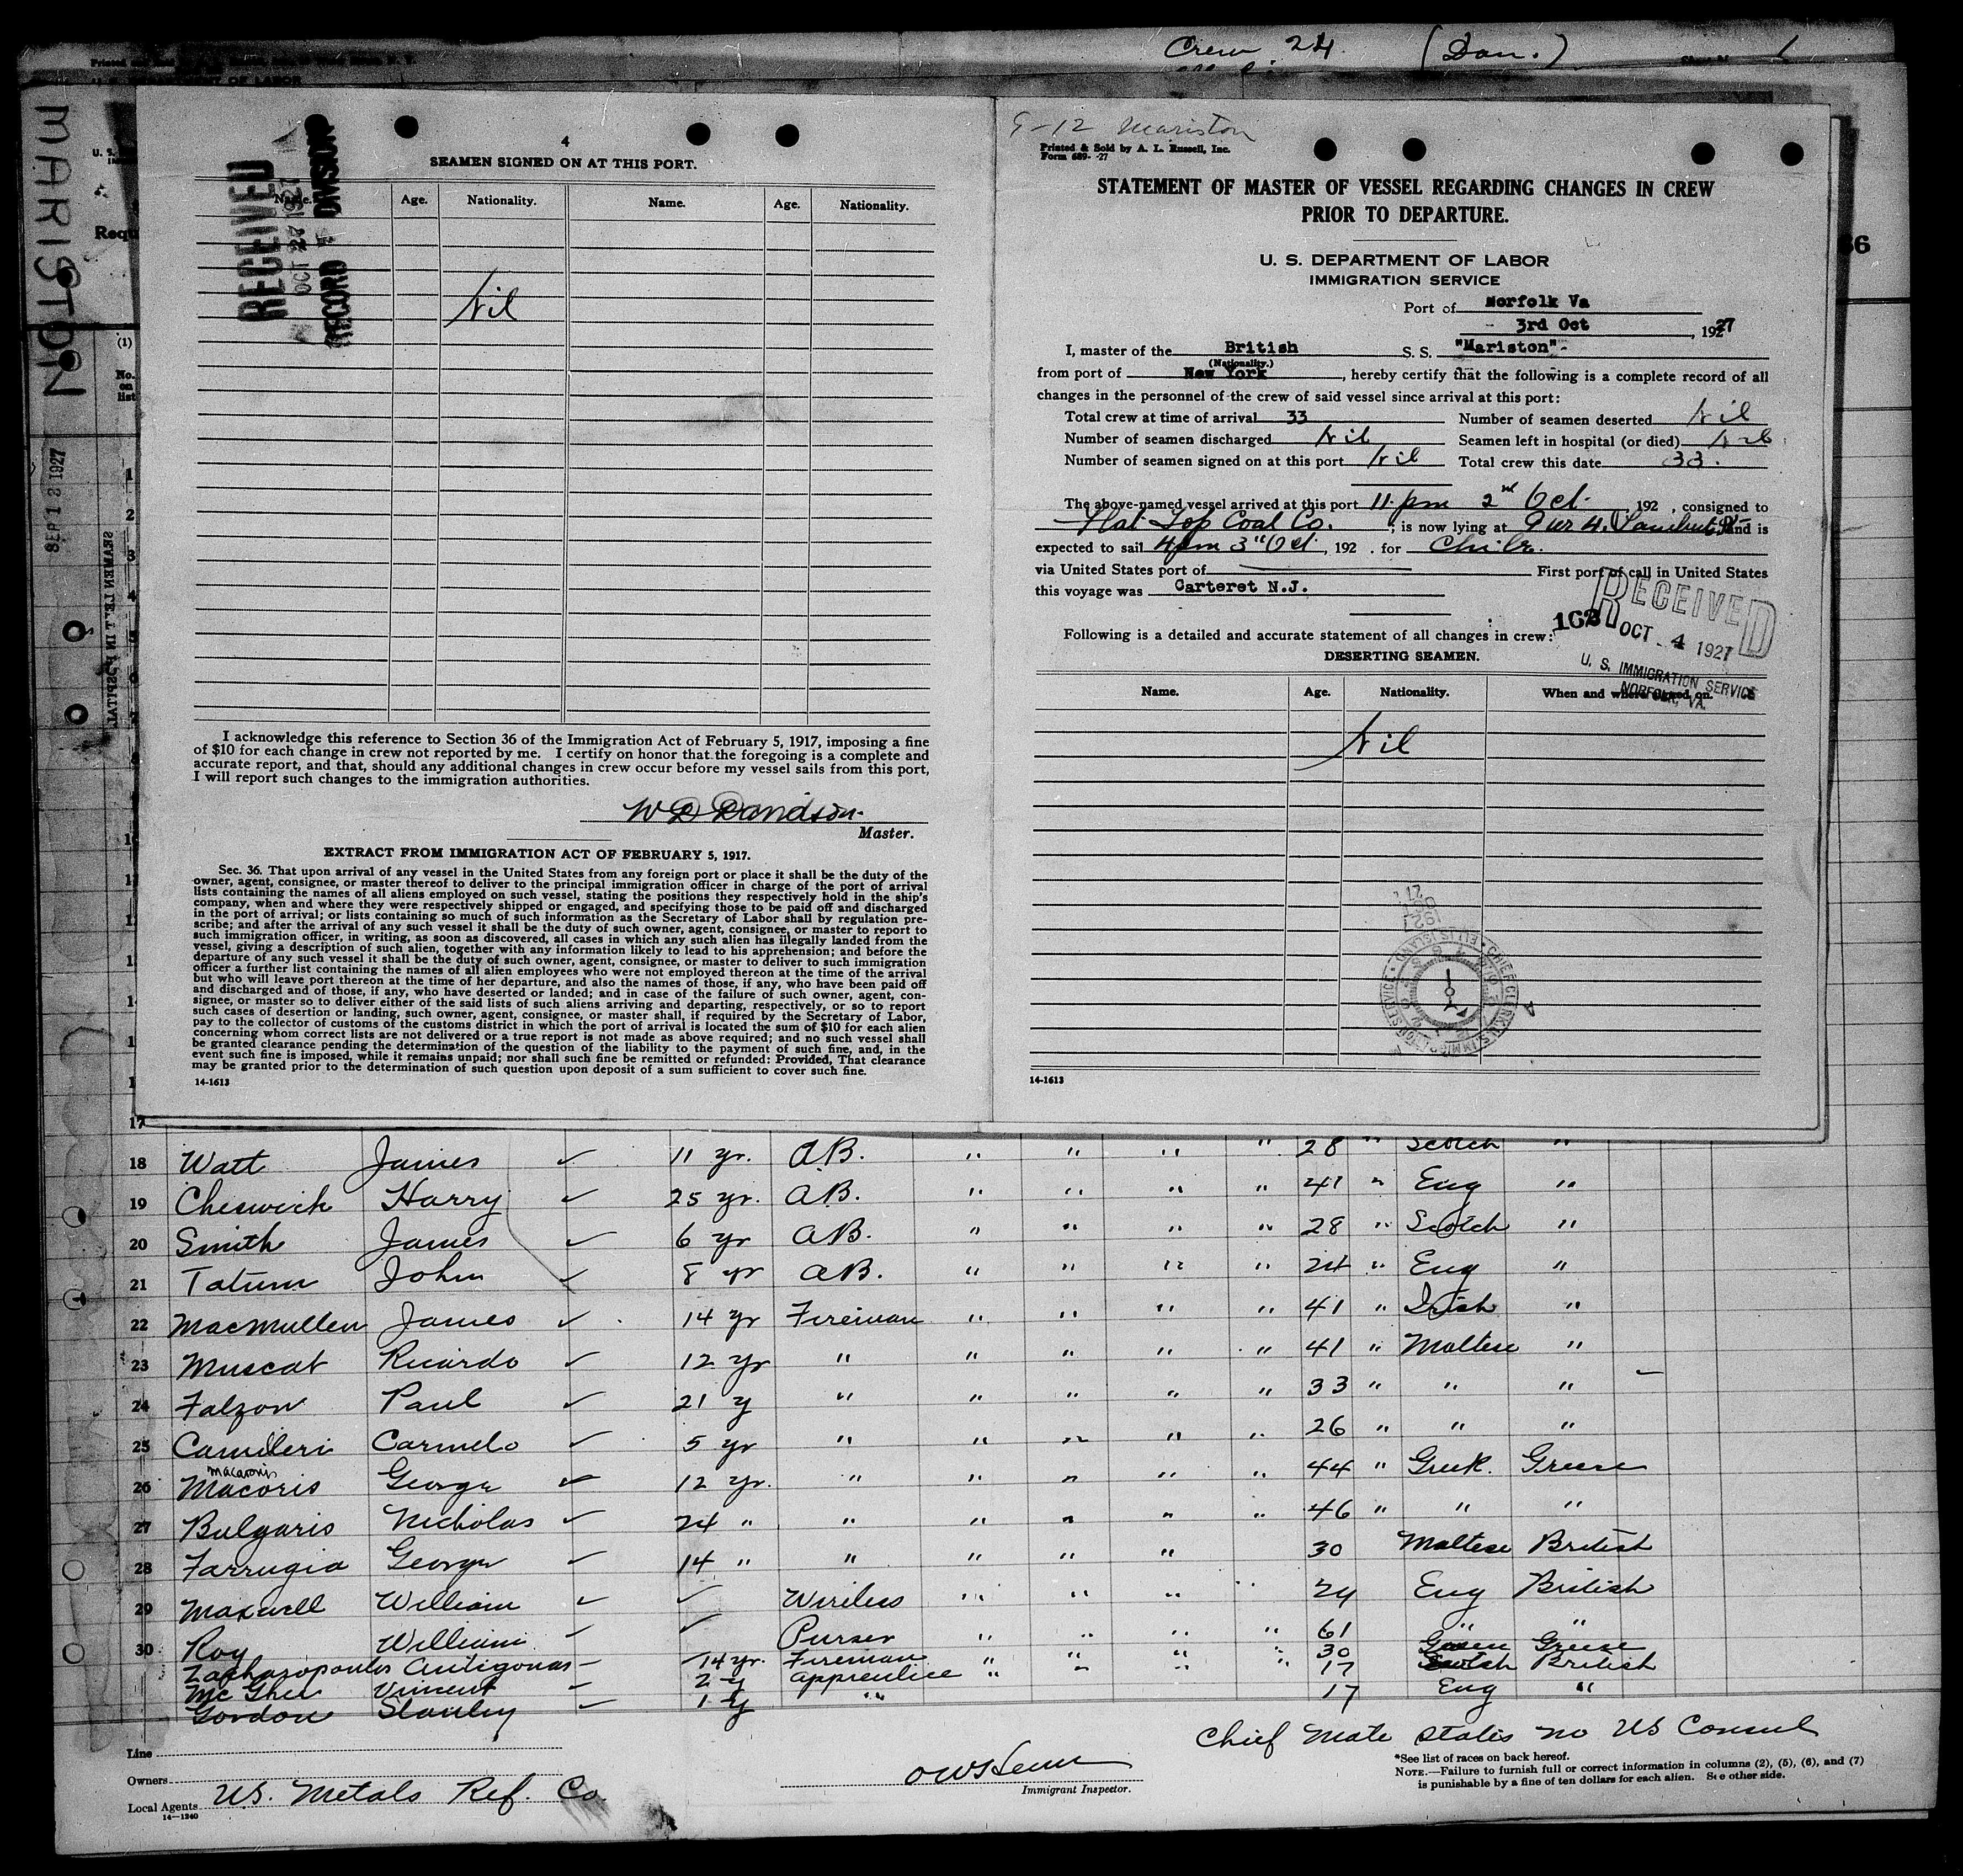 Crew 24 (Dan.) 1
U. S. DEPARTMENT OF LABOR
MARISTON
SEP 12 1927
4
SEAMEN SIGNED ON AT THIS PORT.
RECEIVED
OCT 27 1927
RECORD DIVISION
Name. Age. Nationality. Name. Age. Nationality.
Nil
I acknowledge this reference to Section 36 of the Immigration Act of February 5, 1917, imposing a fine
of $10 for each change in crew not reported by me. I certify on honor that the foregoing is a complete and
accurate report, and that, should any additional changes in crew occur before my vessel sails from this port,
I will report such changes to the immigration authorities.
W D Davidson
Master.
EXTRACT FROM IMMIGRATION ACT OF FEBRUARY 5, 1917.
Sec. 36. That upon arrival of any vessel in the United States from any foreign port or place it shall be the duty of the
owner, agent, consignee, or master thereof to deliver to the principal immigration officer in charge of the port of arrival
lists containing the names of all aliens employed on such vessel, stating the positions they respectively hold in the ship's
company, when and where they were respectively shipped or engaged, and specifying those to be paid off and discharged
in the port of arrival; or lists containing so much of such information as the Secretary of Labor shall by regulation pre-
scribe; and after the arrival of any such vessel it shall be the duty of such owner, agent, consignee, or master to report to
such immigration officer, in writing, as soon as discovered, all cases in which any such alien has illegally landed from the
vessel, giving a description of such alien, together with any information likely to lead to his apprehension; and before the
departure of any such vessel it shall be the duty of such owner, agent, consignee, or master to deliver to such immigration
officer a further list containing the names of all alien employees who were not employed thereon at the time of the arrival
but who will leave port thereon at the time of her departure, and also the names of those, if any, who have been paid off
and discharged and of those, if any, who have deserted or landed; and in case of the failure of such owner, agent, con-
signee, or master so to deliver either of the said lists of such aliens arriving and departing, respectively, or so to report
such cases of desertion or landing, such owner, agent, consignee, or master shall, if required by the Secretary of Labor,
pay to the collector of customs of the customs district in which the port of arrival is located the sum of $10 for each alien
concerning whom correct lists are not delivered or a true report is not made as above required; and no such vessel shall
be granted clearance pending the determination of the question of the liability to the payment of such fine, and, in the
event such fine is imposed, while it remains unpaid; nor shall such fine be remitted or refunded: Provided, That clearance
may be granted prior to the determination of such question upon deposit of a sum sufficient to cover such fine.
14-1613
9-12 Mariston
Printed & Sold by A. L. Russell, Inc.
Form 689- -27
STATEMENT OF MASTER OF VESSEL REGARDING CHANGES IN CREW
PRIOR TO DEPARTURE.
U. S. DEPARTMENT OF LABOR
IMMIGRATION SERVICE
Port of Norfolk Va
3rd Oct , 1927
I, master of the British S. S. "Mariston"
(Nationality.)
from port of New York, hereby certify that the following is a complete record of all
changes in the personnel of the crew of said vessel since arrival at this port:
Total crew at time of arrival 33 Number of seamen deserted Nil
Number of seamen discharged Nil Seamen left in hospital (or died) Nil
Number of seamen signed on at this port Nil Total crew this date 33.
The above-named vessel arrived at this port 11. pm 2nd Oct. , 192 , consigned to
Flat Top Coal Co. ; is now lying at Pier 4. Lamberts Pt and is
expected to sail 4pm 3rd Oct , 192 . for Chile.
via United States port of First port of call in United States
this voyage was Carteret N.J.
Following is a detailed and accurate statement of all changes in crew:
RECEIVED
OCT - 4 1927
U. S. IMMIGRATION SERVICE
NORFOLK, VA.
DESERTING SEAMEN.
Name. Age. Nationality. When and where signed on.
Nil
14-1613
17
18 Watt James 11 yr. A.B. " " " " 28 " Scotch "
19 Cheswick Harry 25 yr. A.B. " " " " 41 " Eng "
20 Smith James 6 yr A.B. " " " " 28 " Scotch "
21 Tatum John 8 yr A.B. " " " " 24 " Eng "
22 MacMullen James 14 yr Fireman " " " " 41 " Irish "
23 Muscat Ricardo 12 yr " " " " " 41 " Maltese "
24 Falzon Paul 21 y " " " " " 33 " " "
25 Camilleri Carmelo 5 yr " " " " " 26 " " "
Macaronis
26 Macoris George 12 yr. " " " " " 44 " Greek. Greese
27 Bulgaris Nicholas 24 " " " " " " 46 " " "
28 Farrugia George 14 " " " " " 30 Maltese British
29 Maxwell William Wireless " " " " 24 Eng British
30 Roy William Purser " " " " 61 " "
Zacharopoulos Antigonas 14 yr. Fireman " " " " 30 Greese
McGhee Vincent 2 y apprentice " " " " 17 Scotch British
Gordon Stanley 1 y " 17 Eng "
Chief Mate states no US Consul
Line
Owners
Local Agents US. Metals Ref. Co
14-1240
Immigrant Inspector.
*See list of races on back hereof.
NOTE.—Failure to furnish full or correct information in columns (2), (5), (6), and (7)
is punishable by a fine of ten dollars for each alien. See other side.